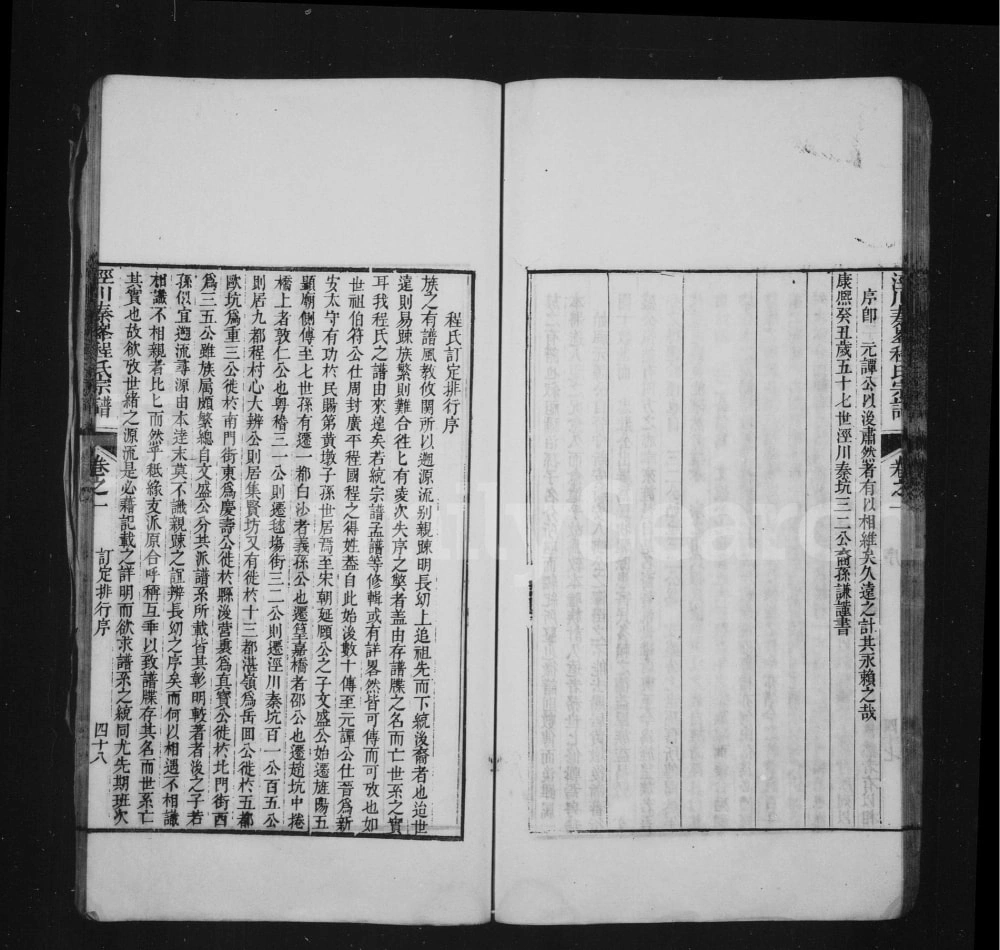 序卽一元譚公以後肅然者有以相維矣久遠之計其永賴之哉
康熈癸丑歲五十七世涇川泰坑三二公裔孫謙謹書
卷之一
程氏訂定排行序
族之有譜風教攸関所以遡源流别親踈明長幼上追祖先而下統後裔者也迨世
遠則易踈族繁則難合徃匕有凌次失序之弊者盖由存譜牒之名而亡世系之實
耳我程氏之譜由來遠矣若統宗譜孟譜等修輯或有詳畧然皆可傳而可攷也如
世祖伯符公仕周封廣平程國程之得姓葢自此始後數十傳至元譚公仕晉爲新
安太守有功於民賜第黄墩子孫世居焉至宋朝延願公之子文盛公始遷旌陽五
顯廟側傳至七世孫有遷一都白沙者義孫公也遷篁嘉橋者邵公也遷趙坑中捲
橋上者敦仁公也粤稽三一公則遷毬塲街三二公則遷涇川泰坑百一公百五公
則居九都程村心大辨公則居集賢坊又有徙於十三都湛嶺爲岳囬公徙於五都
歐坑爲重三公徙於南門街東爲慶壽公徙於縣後营裏爲真寳公徙於北門街西
爲三五公雖族属頗繁總自文盛公分其派譜系所載皆其彰明較著者後之子若
孫似宜遡流尋源由本逹末莫不識親踈之誼辨長幼之序矣而何以相遇不相識
相識不相親者比匕而然乎秪緣支派原合呼稱互乖以致譜牒存其名而世系亡
其實也故欲攷世緒之源流是必藉記載之詳明而欲求譜系之統同尤先期班次
涇川泰峯程氏宗譜
卷之一
訂定排行序
四十八